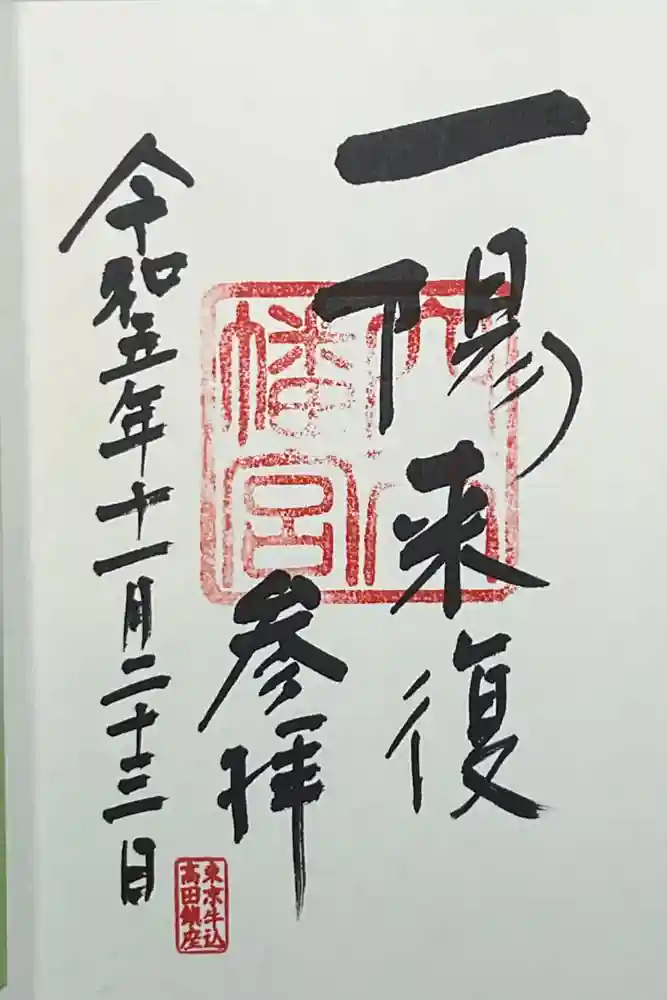 一陽来復
参拝
令和五年十一月二十三日
穴八
幡宮
東京牛込
高田鎮座